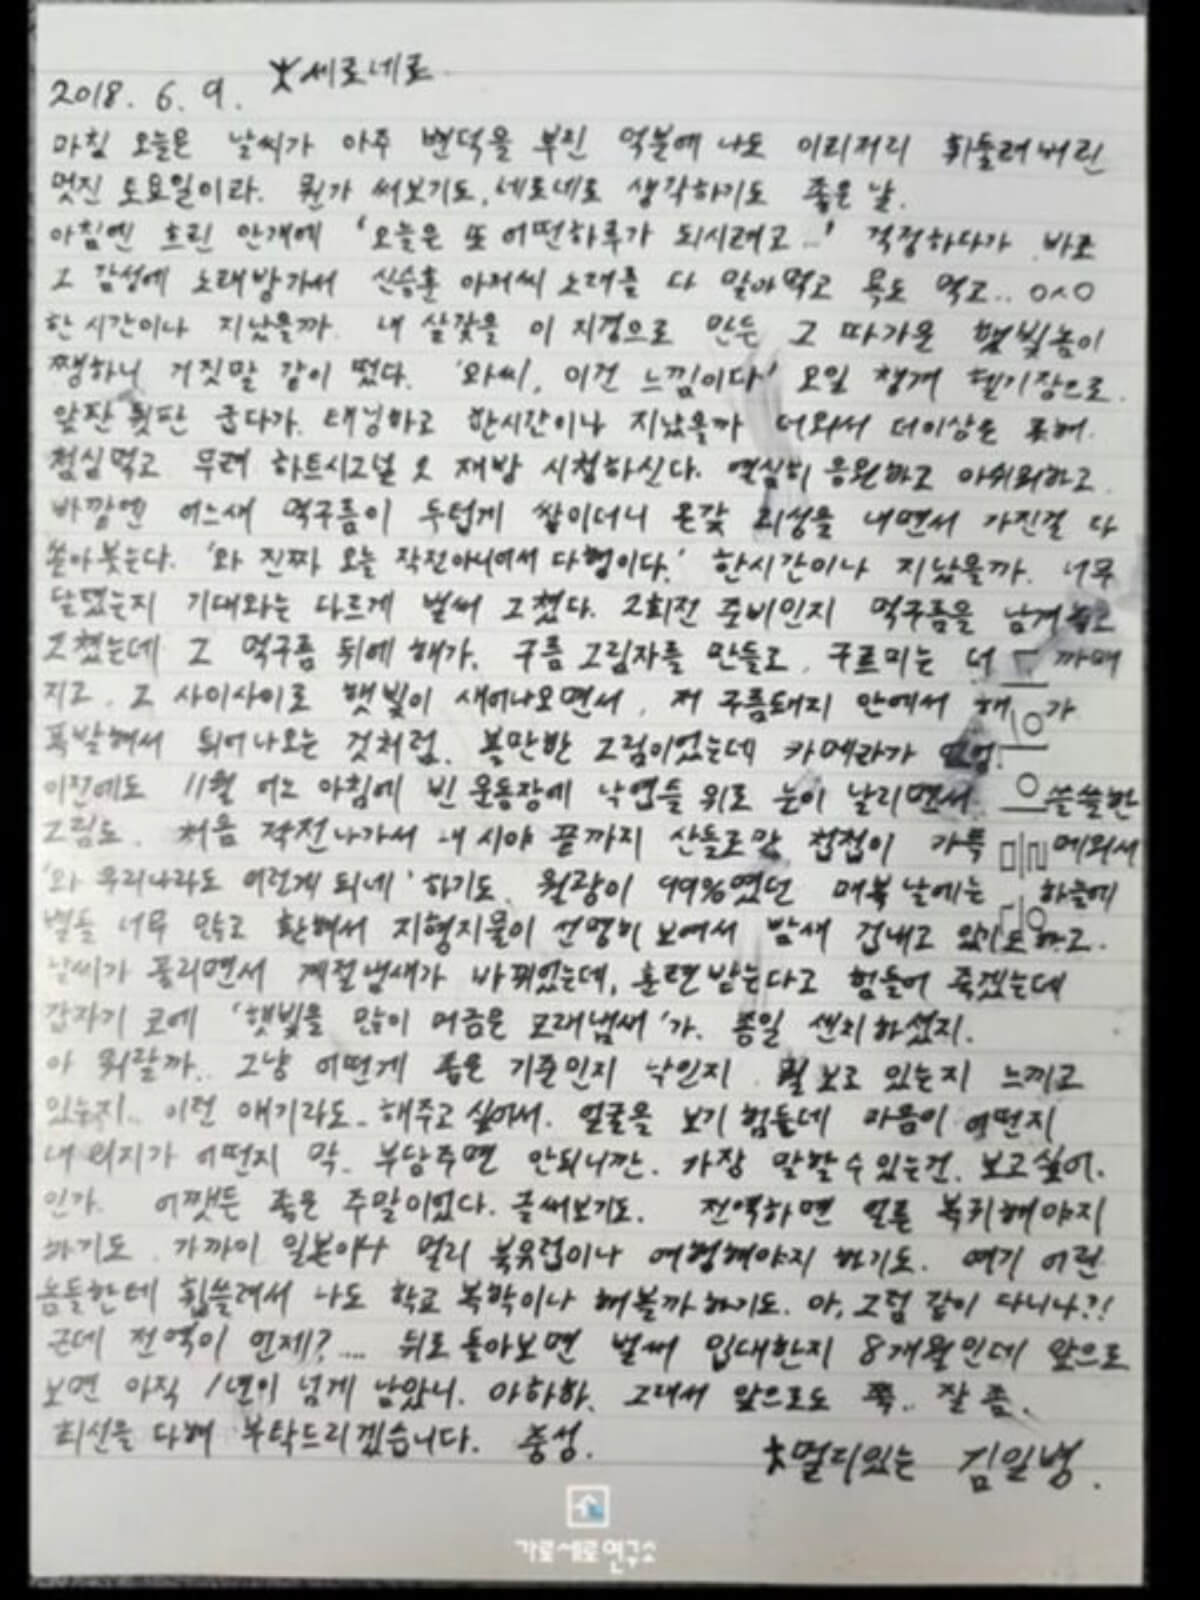 2018. 6. 9. 세로네로
마침 오늘은 날씨가 아주 변덕을 부린 덕분에 나도 이리저리 휘둘려버린
멋진 토요일이라. 뭔가 써보기도, 네로네로 생각하기도 좋은 날.
아침엔 흐린 안개에 '오늘은 또 어떤하루가 되시려고...' 걱정하다가 바로
그 감성에 노래방가서 신승훈 아저씨 노래를 다 말아먹고 욕도 먹고.. ㅇㅅㅇ
한 시간이나 지났을까. 내 살갗을 이 지경으로 만든 그 따가운 햇빛놈이
쨍하니 거짓말 같이 떴다. '와씨, 이건 느낌이다!' 오일 챙겨 헬기장으로.
앞판 뒷판 굽다가. 태닝하고 한시간이나 지났을까 더워서 더이상은 못해.
점심먹고 무려 하트시그널 오 재방 시청하신다. 열심히 응원하고 아쉬워하고.
바깥엔 어느새 먹구름이 두텁게 쌓이더니 온갖 괴성을 내면서 가진걸 다
쏟아붓는다. '와 진짜 오늘 작전아니어서 다행이다.' 한시간이나 지났을까. 너무
달렸는지 기대와는 다르게 벌써 그쳤다. 2회전 준비인지 먹구름을 남겨놓고
그쳤는데 그 먹구름 뒤에 해가. 구름 그림자를 만들고, 구르미는 더 까매
지고, 그 사이사이로 햇빛이 새어나오면서, 저 구름돼지 안에서 해가
폭발해서 튀어나오는 것처럼. 볼만한 그림이었는데 카메라가 없엉.
이전에도 11월 어느 아침에 빈 운동장에 낙엽들 위로 눈이 날리면서 쓸쓸한
그림도. 처음 작전나가서 내 시야 끝까지 산들로만 첩첩이 가득 메워서
'와 우리나라도 이렇게 되네' 하기도. 월광이 99%였던 매복 날에는 하늘에
별들 너무 많고 환해서 지형지물이 선명히 보여서 밤새 겁내고 있기도하고.
날씨가 풀리면서 계절냄새가 바뀌었는데, 훈련받는다고 힘들어 죽겠는데
갑자기 코에 '햇빛을 많이 머금은 모래냄새'가. 종일 센치하셨지.
아 뭐랄까.. 그냥 어떤게 좋은 기준인지 낙인지 뭘 보고 있는지 느끼고
있는지.. 이런 얘기라도.. 해주고 싶어서. 얼굴을 보기 힘들데 마음이 어떤지
내 의지가 어떤지 막. 부담주면 안되니깐. 가장 말할 수 있는건. 보고싶어.
인가. 어쨋든 좋은 주말이었다. 글써보기도. 전역하면 얼른 복귀해야지
하기도. 가까이 일본이나 멀리 북유럽이나 여행해야지 하기도. 여기 어린
놈들한테 휩쓸려서 나도 학교 복학이나 해볼까하기도. 아, 그럼 같이 다니나?!
근데 전역이 언제?.... 뒤로 돌아보면 벌써 입대한지 8개월인데 앞으로
보면 아직 1년이 넘게 남았니. 아하하. 그래서 앞으로도 쭉.. 잘 좀.
최선을 다해 부탁드리겠습니다. 충성.
멀리있는 김일병.
가로세로연구소